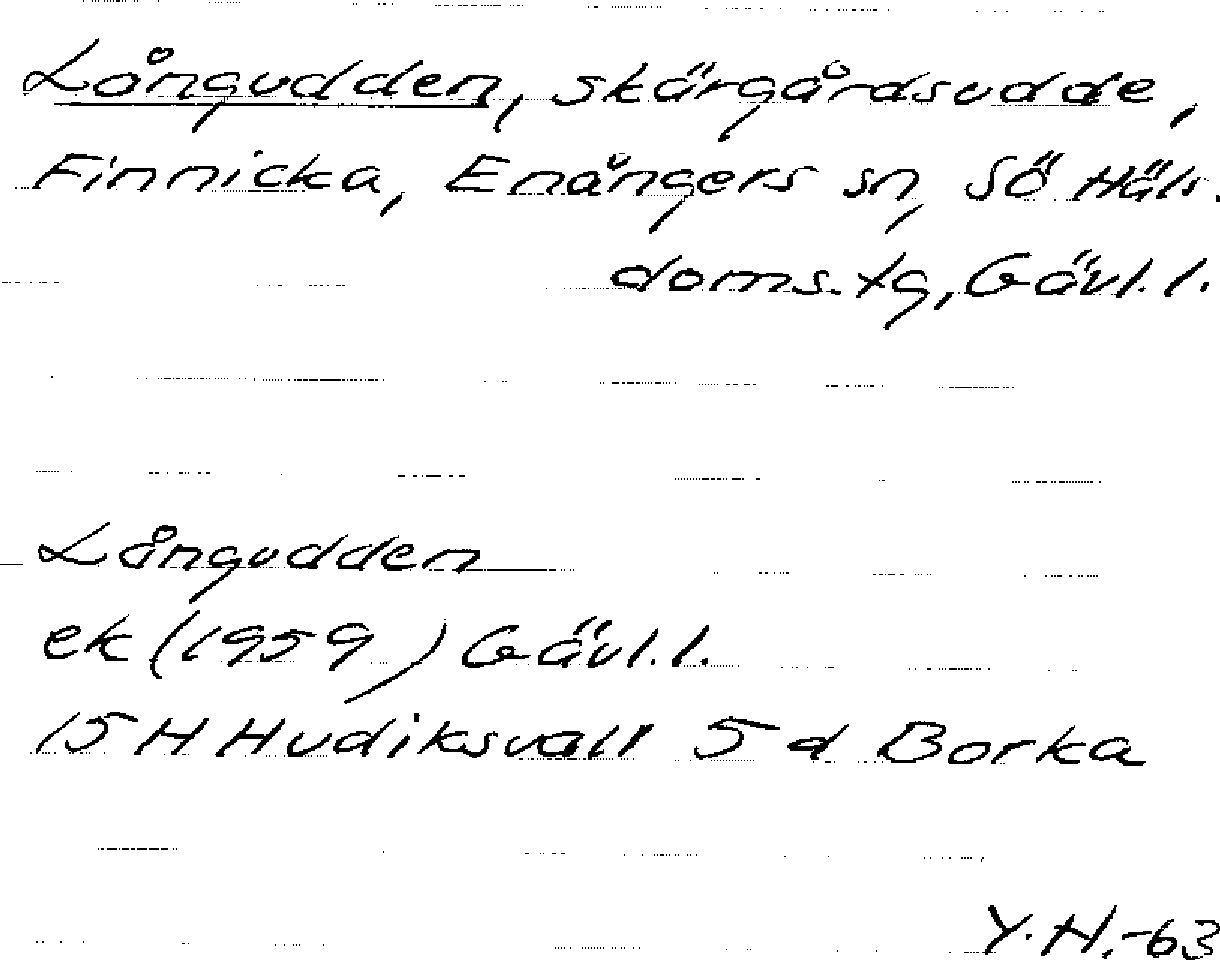 Långudden, skärgårdsudde,
Finnicka, Enångers sn, Sö Häls.
doms.tg, Gävl.l.
Långudden
ek (1959) Gävl.l.
15 H Hudiksvall 5 d Borka
Y.H.-63